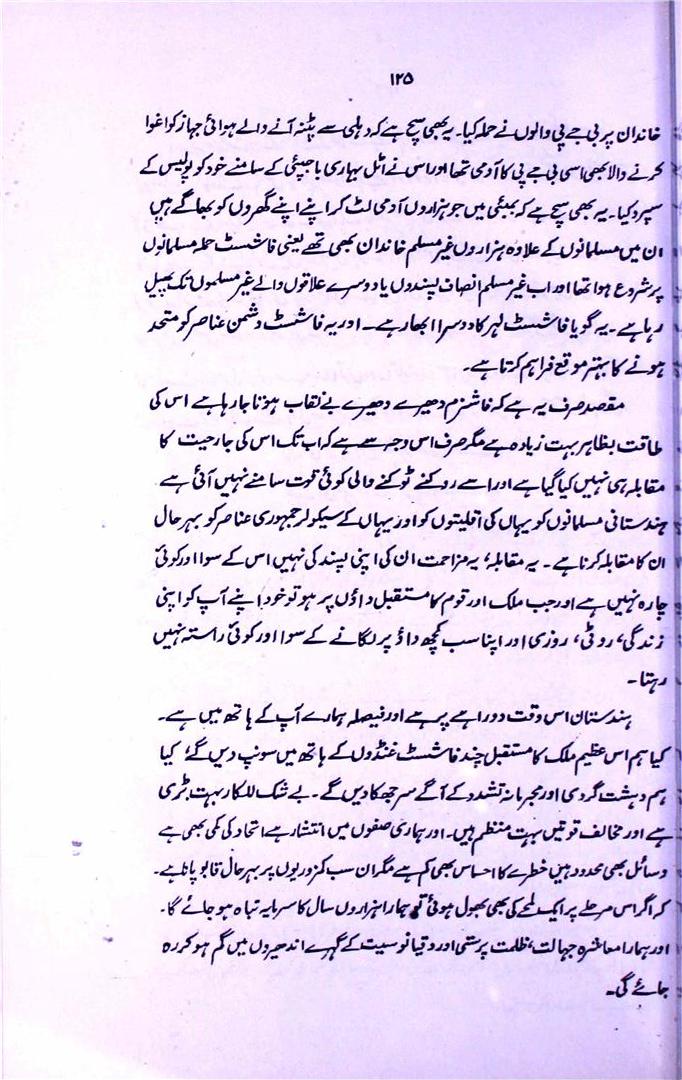 ۱۲۵
خاندان پر بی جے پی والوں نے حملہ کیا۔ یہ بھی سچ ہے کہ دہلی سے پٹنہ آنے والے ہوائی جہاز کو اغوا
کرنے والا بھی اسی بی جے پی کا آدمی تھا اور اس نے اٹل بہاری باجپئی کے سامنے خود کو پولیس کے
سپرد کیا۔ یہ بھی سچ ہے کہ بمبئی میں جو ہزاروں آدمی لٹ کر اپنے اپنے گھروں کو بھاگے ہیں
ان میں مسلمانوں کے علاوہ ہزاروں غیر مسلم خاندان بھی تھے یعنی فاشسٹ حملہ مسلمانوں
پر شروع ہوا تھا اور اب غیر مسلم انصاف پسندوں یا دوسرے علاقوں والے غیر مسلموں تک پھیل
رہا ہے۔ یہ گویا فاشسٹ لہر کا دوسرا ابھار ہے۔ اور یہ فاشسٹ دشمن عناصر کو متحد
ہونے کا بہتر موقع فراہم کرتا ہے۔
مقصد صرف یہ ہے کہ فاشزم دھیرے دھیرے بے نقاب ہوتا جا رہا ہے اس کی
طاقت بظاہر بہت زیادہ ہے مگر صرف اس وجہ سے ہے کہ اب تک اس کی جارحیت کا
مقابلہ ہی نہیں کیا گیا ہے اور اسے روکنے ٹوکنے والی کوئی قوت سامنے نہیں آئی ہے
ہندستانی مسلمانوں کو یہاں کی اقلیتوں کو اور یہاں کے سیکولر جمہوری عناصر کو بہر حال
ان کا مقابلہ کرنا ہے۔ یہ مقابلہ، یہ مزاحمت ان کی اپنی پسند کی نہیں اس کے سوا اور کوئی
چارہ نہیں ہے اور جب ملک اور قوم کا مستقبل داؤں پر ہو تو خود اپنے آپ کو اپنی
زندگی، روٹی، روزی اور اپنا سب کچھ داؤ پر لگانے کے سوا اور کوئی راستہ نہیں
رہتا۔
ہندستان اس وقت دوراہے پر ہے اور فیصلہ ہمارے آپ کے ہاتھ میں ہے۔
کیا ہم اس عظیم ملک کا مستقبل چند فاشسٹ غنڈوں کے ہاتھ میں سونپ دیں گے، کیا
ہم دہشت گردی اور مجرمانہ تشدد کے آگے سر جھکا دیں گے۔ بے شک للکار بہت بڑی
ہے اور مخالف قوتیں بہت منظم ہیں۔ اور ہماری صفوں میں انتشار ہے اتحاد کی کمی بھی ہے
وسائل بھی محدود ہیں خطرے کا احساس بھی کم ہے مگر ان سب کمزوریوں پر بہر حال قابو پانا ہے۔
کہ اگر اس مرحلے پر ایک لمحے کی بھی بھول ہوئی تو ہمارا ہزاروں سال کا سرمایہ تباہ ہو جائے گا۔
اور ہمارا معاشرہ جہالت، ظلمت پرستی اور دقیانوسیت کے گہرے اندھیروں میں گم ہو کر رہ
جائے گی۔